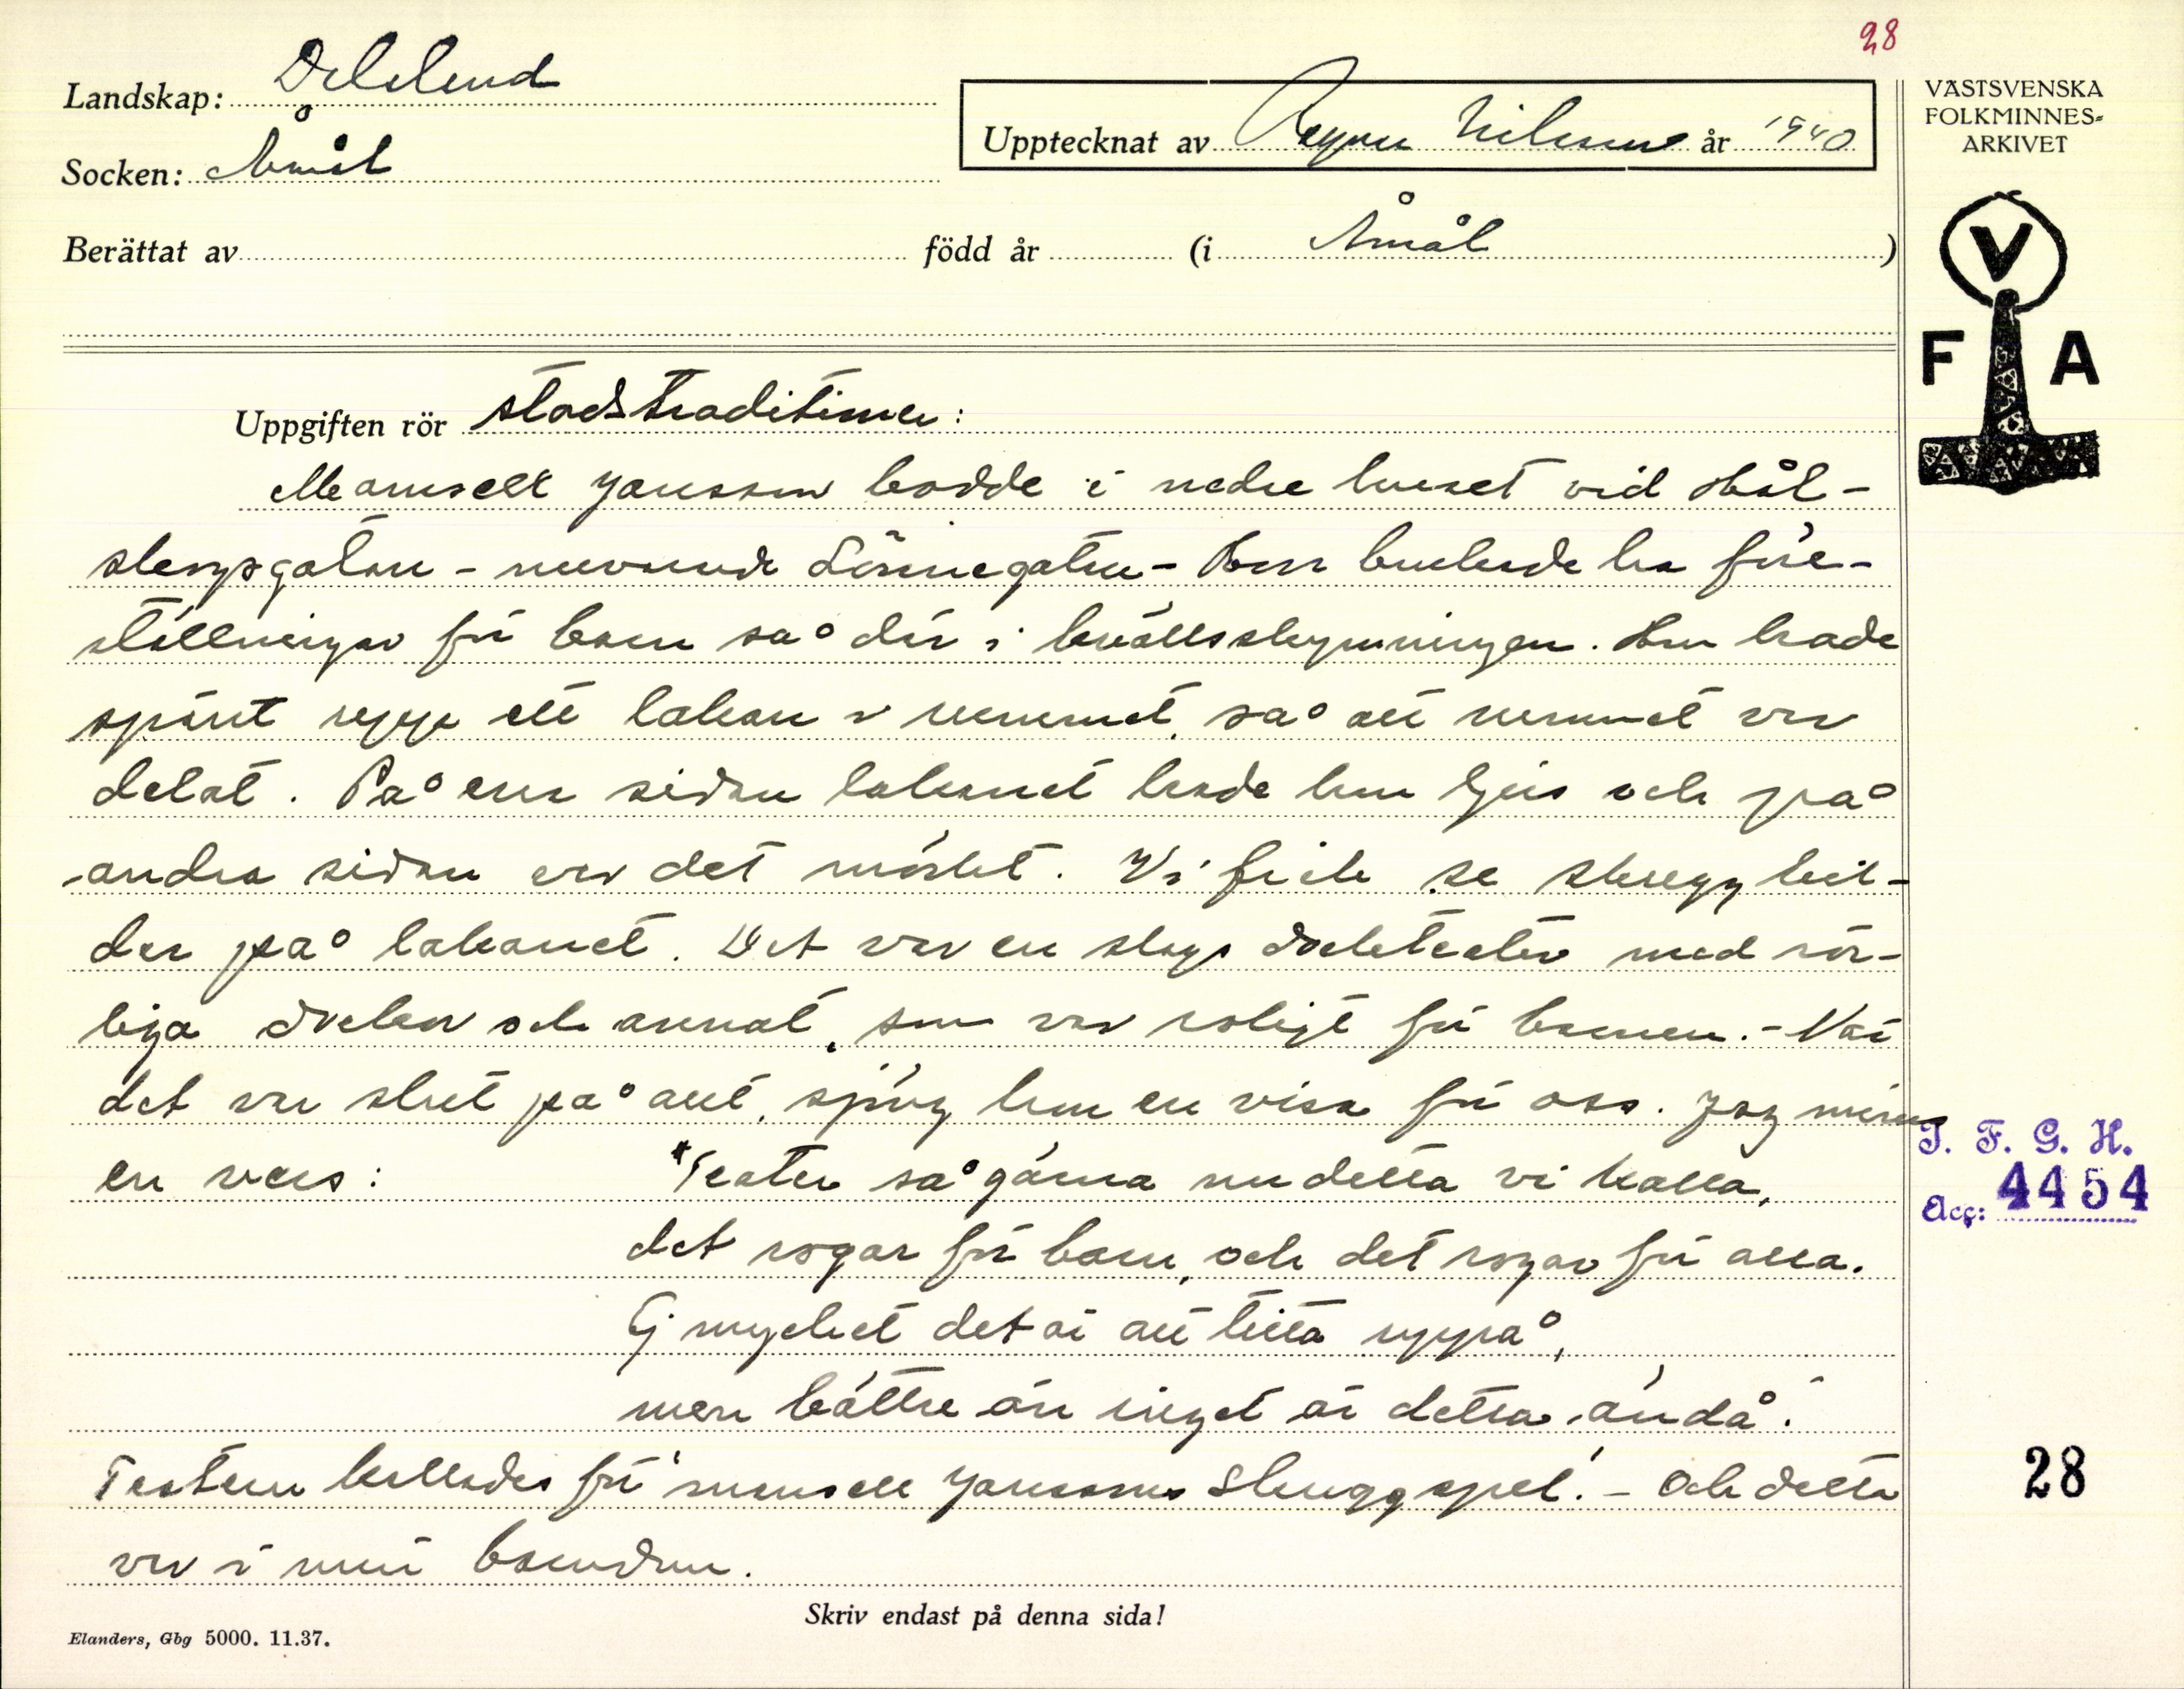 28
Landskap: Dalsland
Socken: Åmål
Upptecknat av Ragnar Nilsson år 1940
VÄSTSVENSKA
FOLKMINNES-
ARKIVET
Berättat av född år (i Åmål )
V
F A
Uppgiften rör stadstraditioner:
Mamsell Jansson bodde i nedre huset vid Hål-
slempsgatan - nuvarande Lönnegatan - Hon brukade ha före-
ställningar för barn så där i kvällsskymningen. Hon hade
spänt upp ett lakan i rummet, så att rummet var
delat. På ena sidan lakanet hade hon ljus och på
andra sidan var det mörkt. Vi fick se skuggbil-
der på lakanet. Det var en slags dockteater med rör-
liga dockor och annat, som var roligt för barnen. - När
det var slut på allt, sjöng hon en visa för oss. Jag minns
en vers: "Teater så gärna nu detta vi kalla,
det rogar för barn, och det rogar för alla.
Ej mycket det är att titta uppå,
men bättre än inget är detta ändå."
Teatern kallades för "mamsell Janssons skuggspel". - Och detta
var i min barndom.
I. F. G. H.
Acc: 4454
28
Skriv endast på denna sida!
Elanders, Gbg 5000. 11.37.